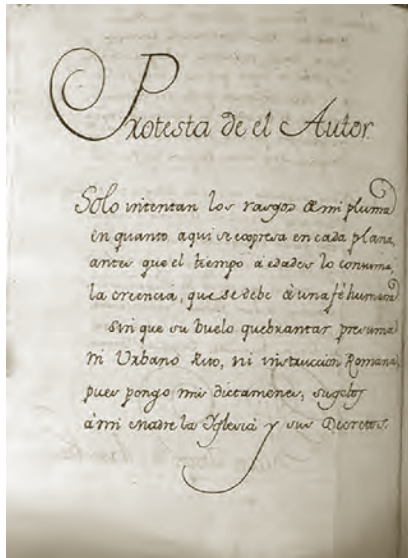 Protesta de el Autor
Solo intentan los rasgos de mi pluma
en quanto aqui se expresa en cada plana,
antes que el tiempo à edades lo consuma,
la creencia, que se debe à una fé humana
sin que su buelo quebrantar presuma
ni Urbano Rito, ni instruccion Romana,
pues pongo mis dictamenes, sugetos
à mi Madre la Iglesia y sus Decretos.